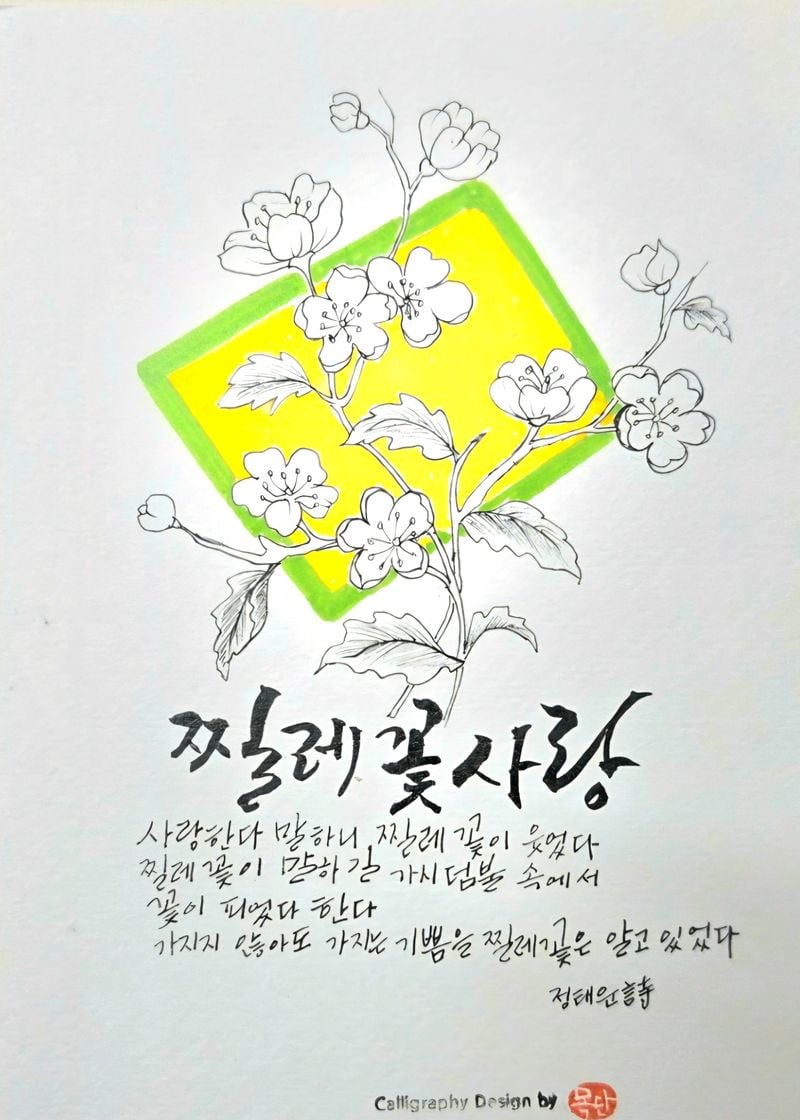 찔레꽃사랑
사랑한다 말하니 찔레꽃이 웃었다
찔레꽃이 말하길 가시덤불 속에서
꽃이 피었다 한다
가지지 않아도 가지는 기쁨을 찔레꽃은 알고 있었다
정태원詩
Calligraphy Design by 목다